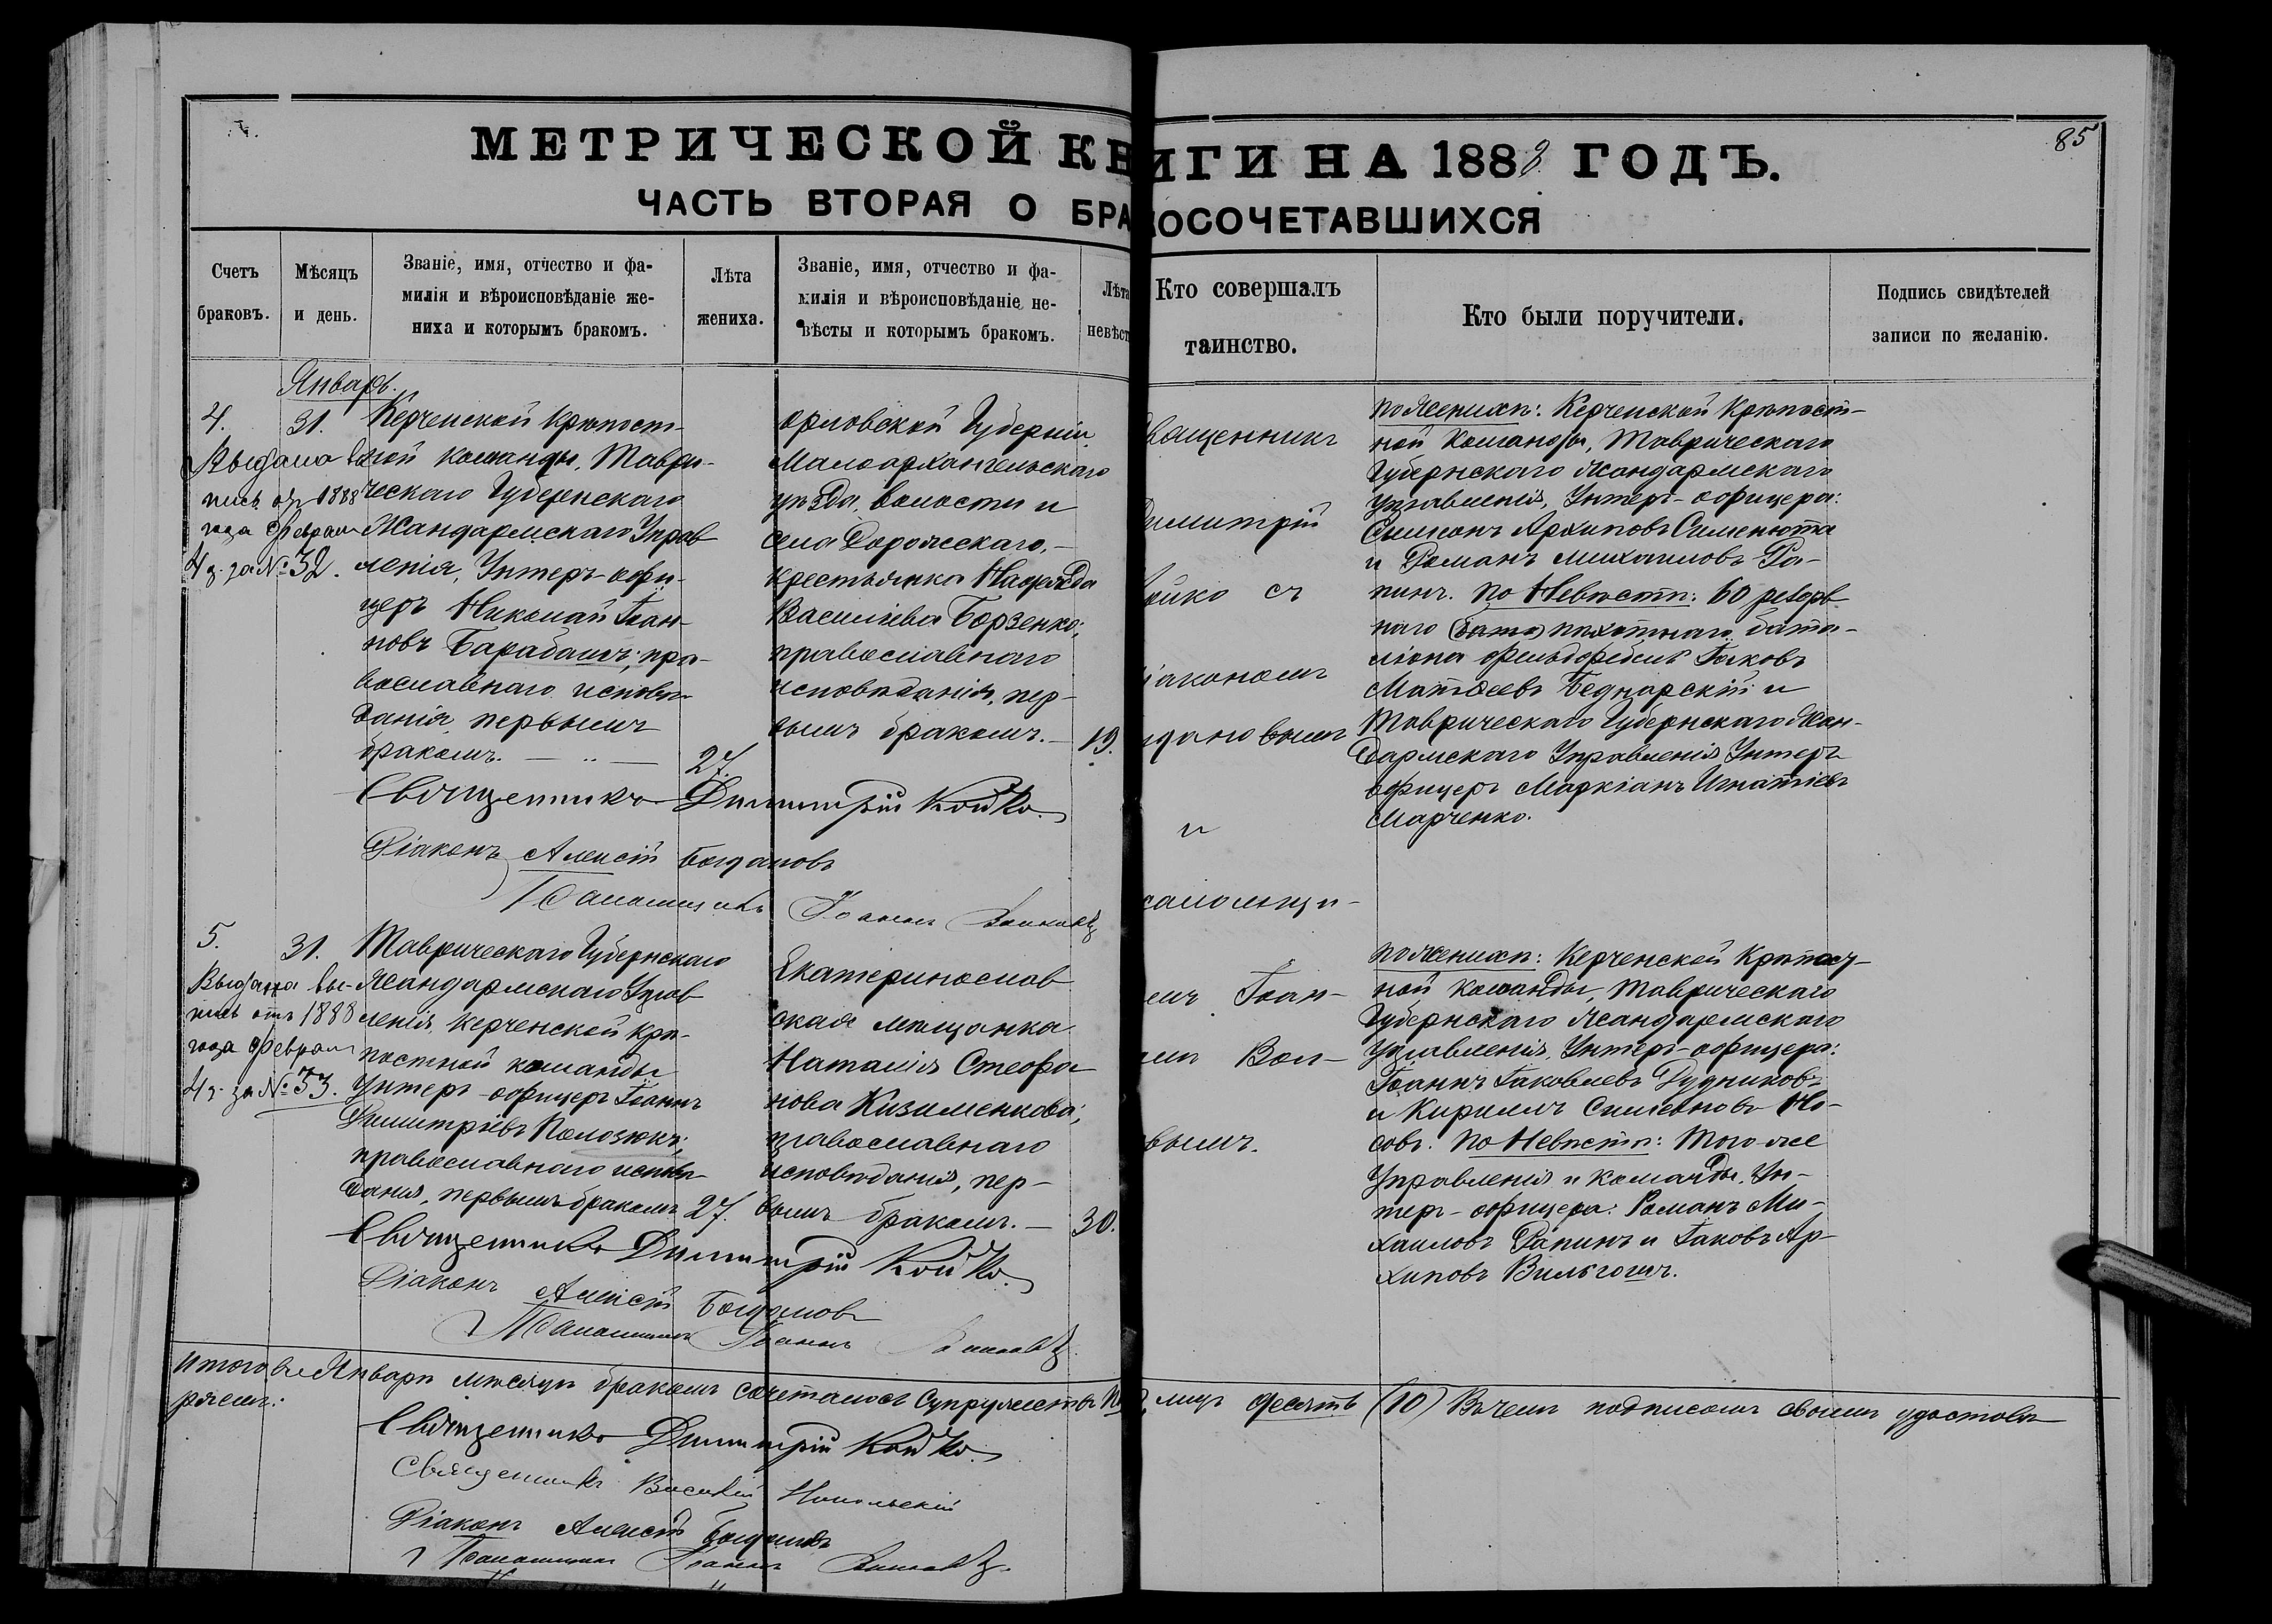 МЕТРИЧЕСКОЙ КН
ИГИ НА 1888 ГОДЪ.
85
ЧАСТЬ ВТОРАЯ О БРА
КОСОЧЕТАВШИХСЯ
Счетъ
браковъ.
Мѣсяцъ
и день.
Званіе, имя, отчество и фа-
милія и вѣроисповѣданіе же-
ниха и которымъ бракомъ.
Лѣта
жениха.
Званіе, имя, отчество и фа-
милія и вѣроисповѣданіе не-
вѣсты и которымъ бракомъ.
Лѣта
невѣст
Кто совершалъ
таинство.
Кто были поручители.
Подпись свидѣтелей
записи по желанію.
Январь.
4.
Выдана вы
пись отъ 1888
года Февраля
4 д. за № 32.
31.
Керченской Крѣпост-
ной команды, Таври-
ческаго Губернскаго
Жандармскаго Управ
ленія, Унтеръ-офи-
церъ Николай Іоан-
новъ Барабашъ; пра-
вославнаго исповѣ-
данія, первымъ
бракомъ. — „ —
27.
Орловской Губерніи
Малоархангельскаго
уѣзда, волости и
села Дорожескаго, —
крестьянка Надежда
Василіева Борзенко;
православнаго
исповѣданія, пер-
вымъ бракомъ. —
19.
Священникъ
Димитрій
Койко съ
діакономъ
Богдановымъ
и
псаломщи-
комъ Іоан-
номъ Вол-
вымъ.
по Женихѣ: Керченской Крѣпост-
ной команды, Таврическаго
Губернскаго Жандармскаго
управленія, Унтеръ-офицера:
Симеонъ Архиповъ Сименюта
и Романъ Михаиловъ Ра-
пинъ. По Невѣстѣ: 60 резерв
наго (бата) пѣхотнаго бата-
ліона фельдфебель Іаковъ
Матѳеевъ Беднарскій и
Таврическаго Губернскаго Жан-
дармскаго Управленія Унтеръ
офицеръ Маркіанъ Игнатіевъ
Марченко.
Священникъ Димитрій Койко.
Діаконъ Алексій Богдановъ
Псаломщикъ Іоаннъ
5.
Выдана вы-
пись отъ 1888
года Февраля
4 д. за № 33.
31.
Таврическаго Губернскаго
Жандармскаго Управ
ленія, Керченской Крѣ-
постной команды
Унтеръ-офицеръ Іоаннъ
Димитріевъ Полозюкъ;
православнаго исповѣ-
данія, первымъ бракомъ
27.
Екатеринослав
ская мѣщанка
Наталія Стефа
нова Кизименкова;
православнаго
исповѣданія, пер-
вымъ бракомъ. —
30.
по Женихѣ: Керченской Крѣпост-
ной команды, Таврическаго
Губернскаго Жандармскаго
Управленія, Унтеръ-офицера:
Іоаннъ Іаковлевъ Дудниковъ
и Кириллъ Симеоновъ Но-
совъ. По Невѣстѣ: Того-же
Управленія и команды, Ун-
теръ-офицера: Романъ Ми-
хаиловъ Рапинъ и Іаковъ Ар-
хиповъ Вильгошъ.
Священникъ Димитрій Койко.
Діаконъ Алексій Богдановъ
Псаломщикъ Іоаннъ
Итого въ Январѣ мѣсяцѣ бракомъ сочеталось Супружествъ
лицъ десять (10) Въ чемъ подписомъ своимъ удостовѣ-
ряемъ:
Священникъ Димитрій Койко.
Священникъ Василій Никольскій
Діаконъ Алексій Богдановъ
Псаломщикъ Іоаннъ